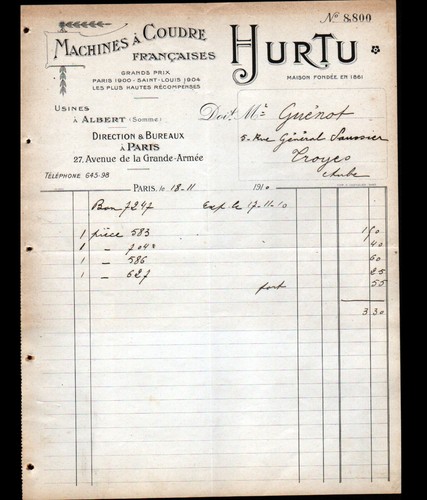 Nº 8,800
MACHINES À COUDRE
FRANÇAISES
HURTU
GRANDS PRIX
PARIS 1900 - SAINT-LOUIS 1904
LES PLUS HAUTES RÉCOMPENSES
MAISON FONDÉE EN 1861
USINES
À ALBERT (Somme)
DIRECTION & BUREAUX
À PARIS
27, Avenue de la Grande-Armée
TÉLÉPHONE 645-98
Doit Mr Guénot
5- Rue Général Saussier
Troyes
Aube
PARIS, le 18-11 1910
Bon 7247 Exp. le 17-11-10
1 pièce 583 1 50
1 - 704 40
1 - 586 60
1 - 627 25
port 55
3 30